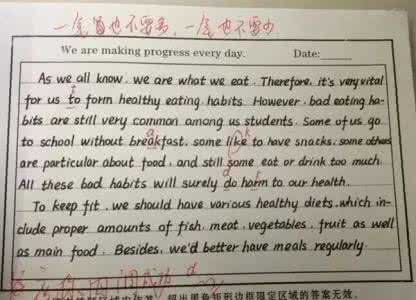 We are making progress every day. Date:
As we all know, we are what we eat. Therefore, it's very vital
for us to form healthy eating habits. However, bad eating ha-
bits are still very common among us students. Some of us go
to school without breakfast, some like to have snacks, some others
are particular about food, and still some eat or drink too much.
All these bad habits will surely do harm to our health.
To keep fit, we should have various healthy diets, which in-
clude proper amounts of fish, meat, vegetables, fruit as well
as main food. Besides, we'd better have meals regularly.
超出黑色矩形边框限定区域的答案无效。